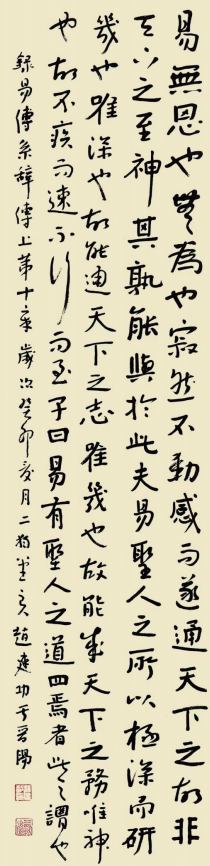 易無思也無為也寂然不動感而遂通天下之故非
天下之至神其孰能與於此夫易聖人之所以極深而研
幾也唯深也故能通天下之志唯幾也故能成天下之務唯神
也故不疾而速不行而至子曰易有聖人之道四焉者此之謂也
錄易傳系辭傳上第十章歲次癸卯夏月二趙建功于陽